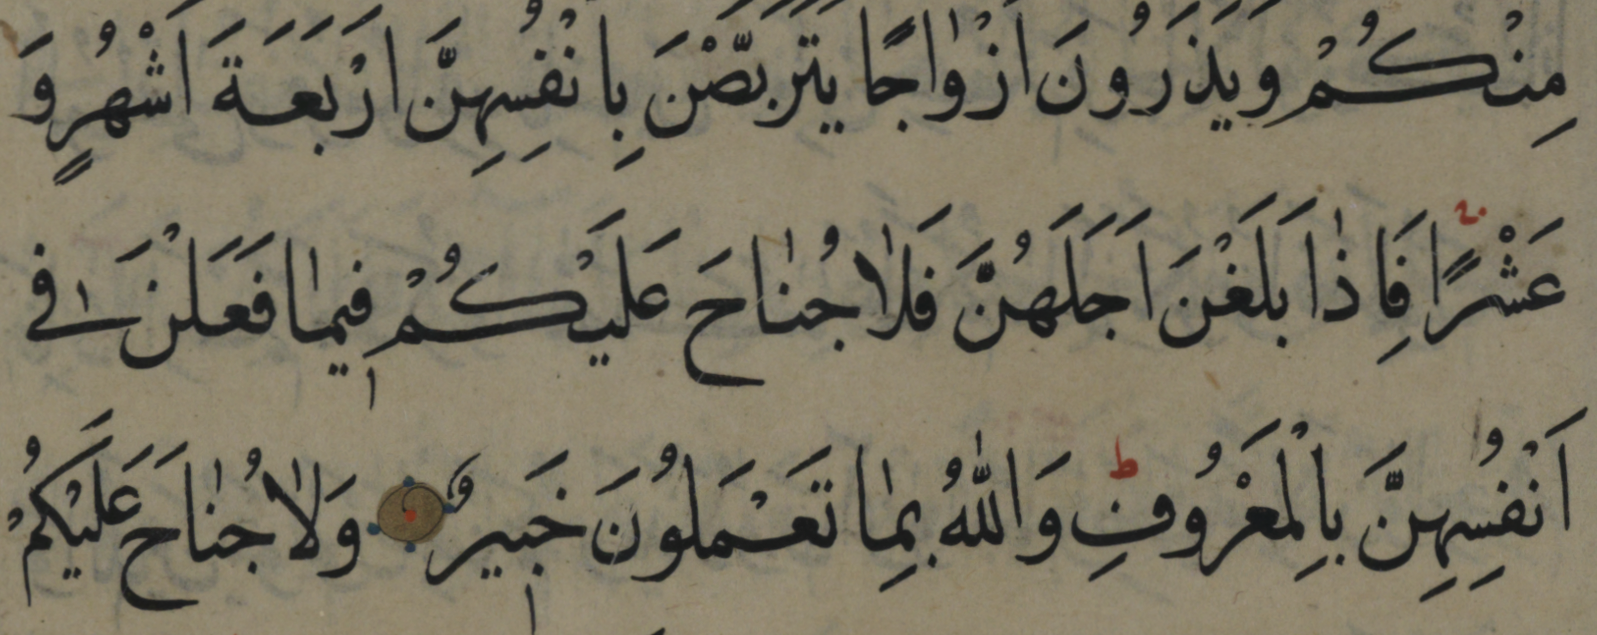 مِنْكُمْ وَيَذَرُونَ اَزْوٰاجًا يَتَرَبَّصْنَ بِاَنْفُسِهِنَّ اَرْبَعَةَ اَشْهُرٍ وَ
عَشْرًا فَاِذٰا بَلَغْنَ اَجَلَهُنَّ فَلٰا جُنٰاحَ عَلَيْكُمْ فيمٰا فَعَلْنَ في
اَنْفُسِهِنَّ بِالْمَعْرُوفِ ط وَاللّٰهُ بِمٰا تَعْمَلُونَ خَبيرٌ وَلٰا جُنٰاحَ عَلَيْكُمْ